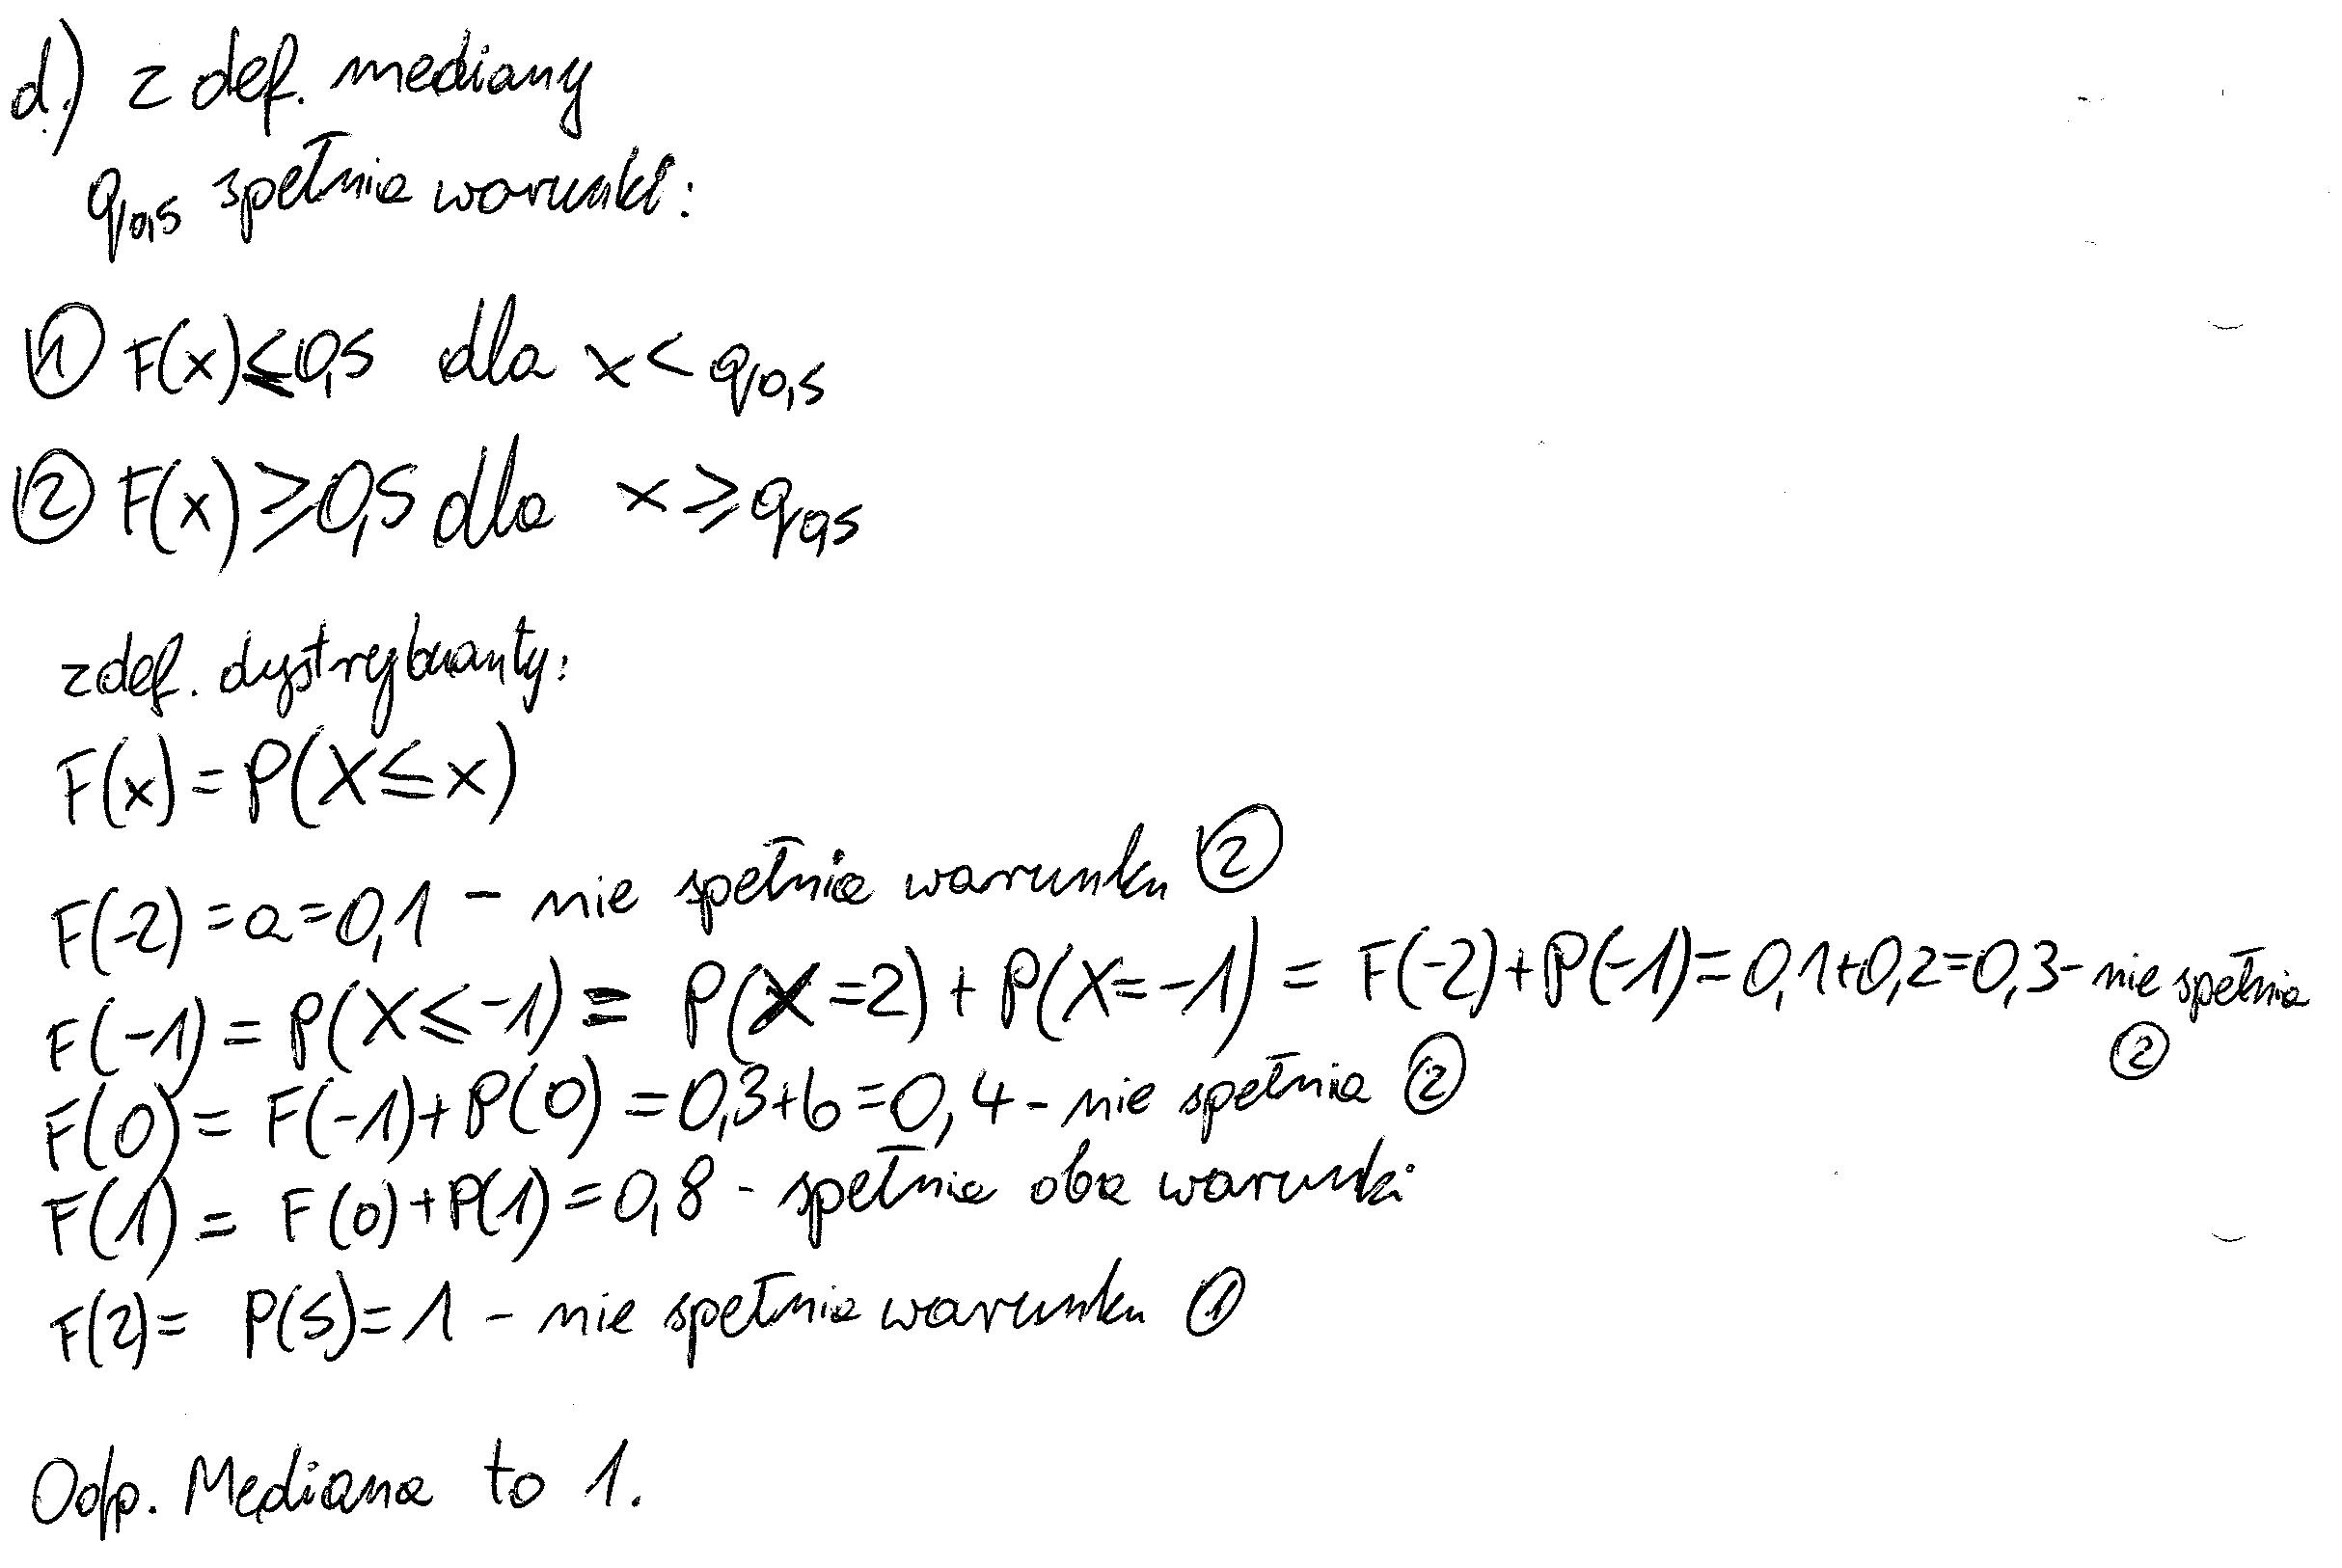 d.) z def. mediany
q0,5 spełnia warunki:
① F(x)≤0,5 dla x < q0,5
② F(x)≥0,5 dla x ≥ q0,5
z def. dystrybuanty:
F(x) = P(X≤x)
F(-2) = a = 0,1 - nie spełnia warunku ②
F(-1) = P(X≤-1) = P(X=2) + P(X=-1) = F(-2)+P(-1)=0,1+0,2=0,3- nie spełnia ②
F(0) = F(-1)+P(0) = 0,3+b=0,4 - nie spełnia ②
F(1) = F(0)+P(1) = 0,8 - spełnia oba warunki
F(2)= P(S)=1 - nie spełnia warunku ①
Odp. Mediana to 1.